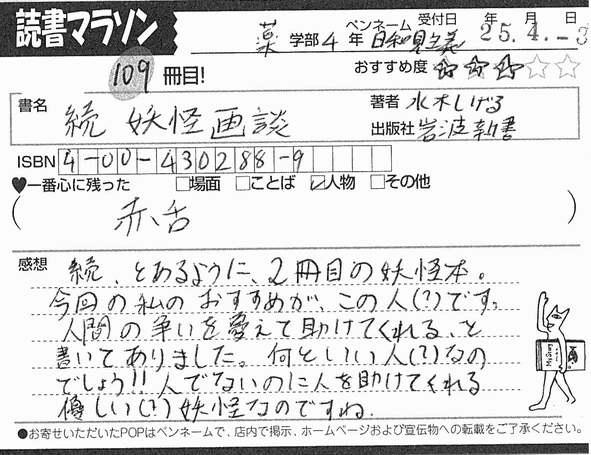 読書マラソン
ペンネーム 受付日 年 月 日
薬 学部 4 年 日和見主義 25.4.-3
109 冊目!
おすすめ度 ☆☆☆☆☆
書名 続 妖怪画談
著者 水木しげる
出版社 岩波新書
ISBN 4-00-430288-9
♥一番心に残った □場面 □ことば ☑人物 □その他
( 赤舌 )
感想 続、とあるように、2冊目の妖怪本。
今回の私のおすすめが、この人(?)です。
人間の争いを憂えて助けてくれる、と
書いてありました。何といい人(?)なの
でしょう!!人でないのに人を助けてくれる
優しい(?)妖怪なのですね.
●お寄せいただいたPOPはペンネームで、店内で掲示、ホームページおよび宣伝物への転載をご了承ください。